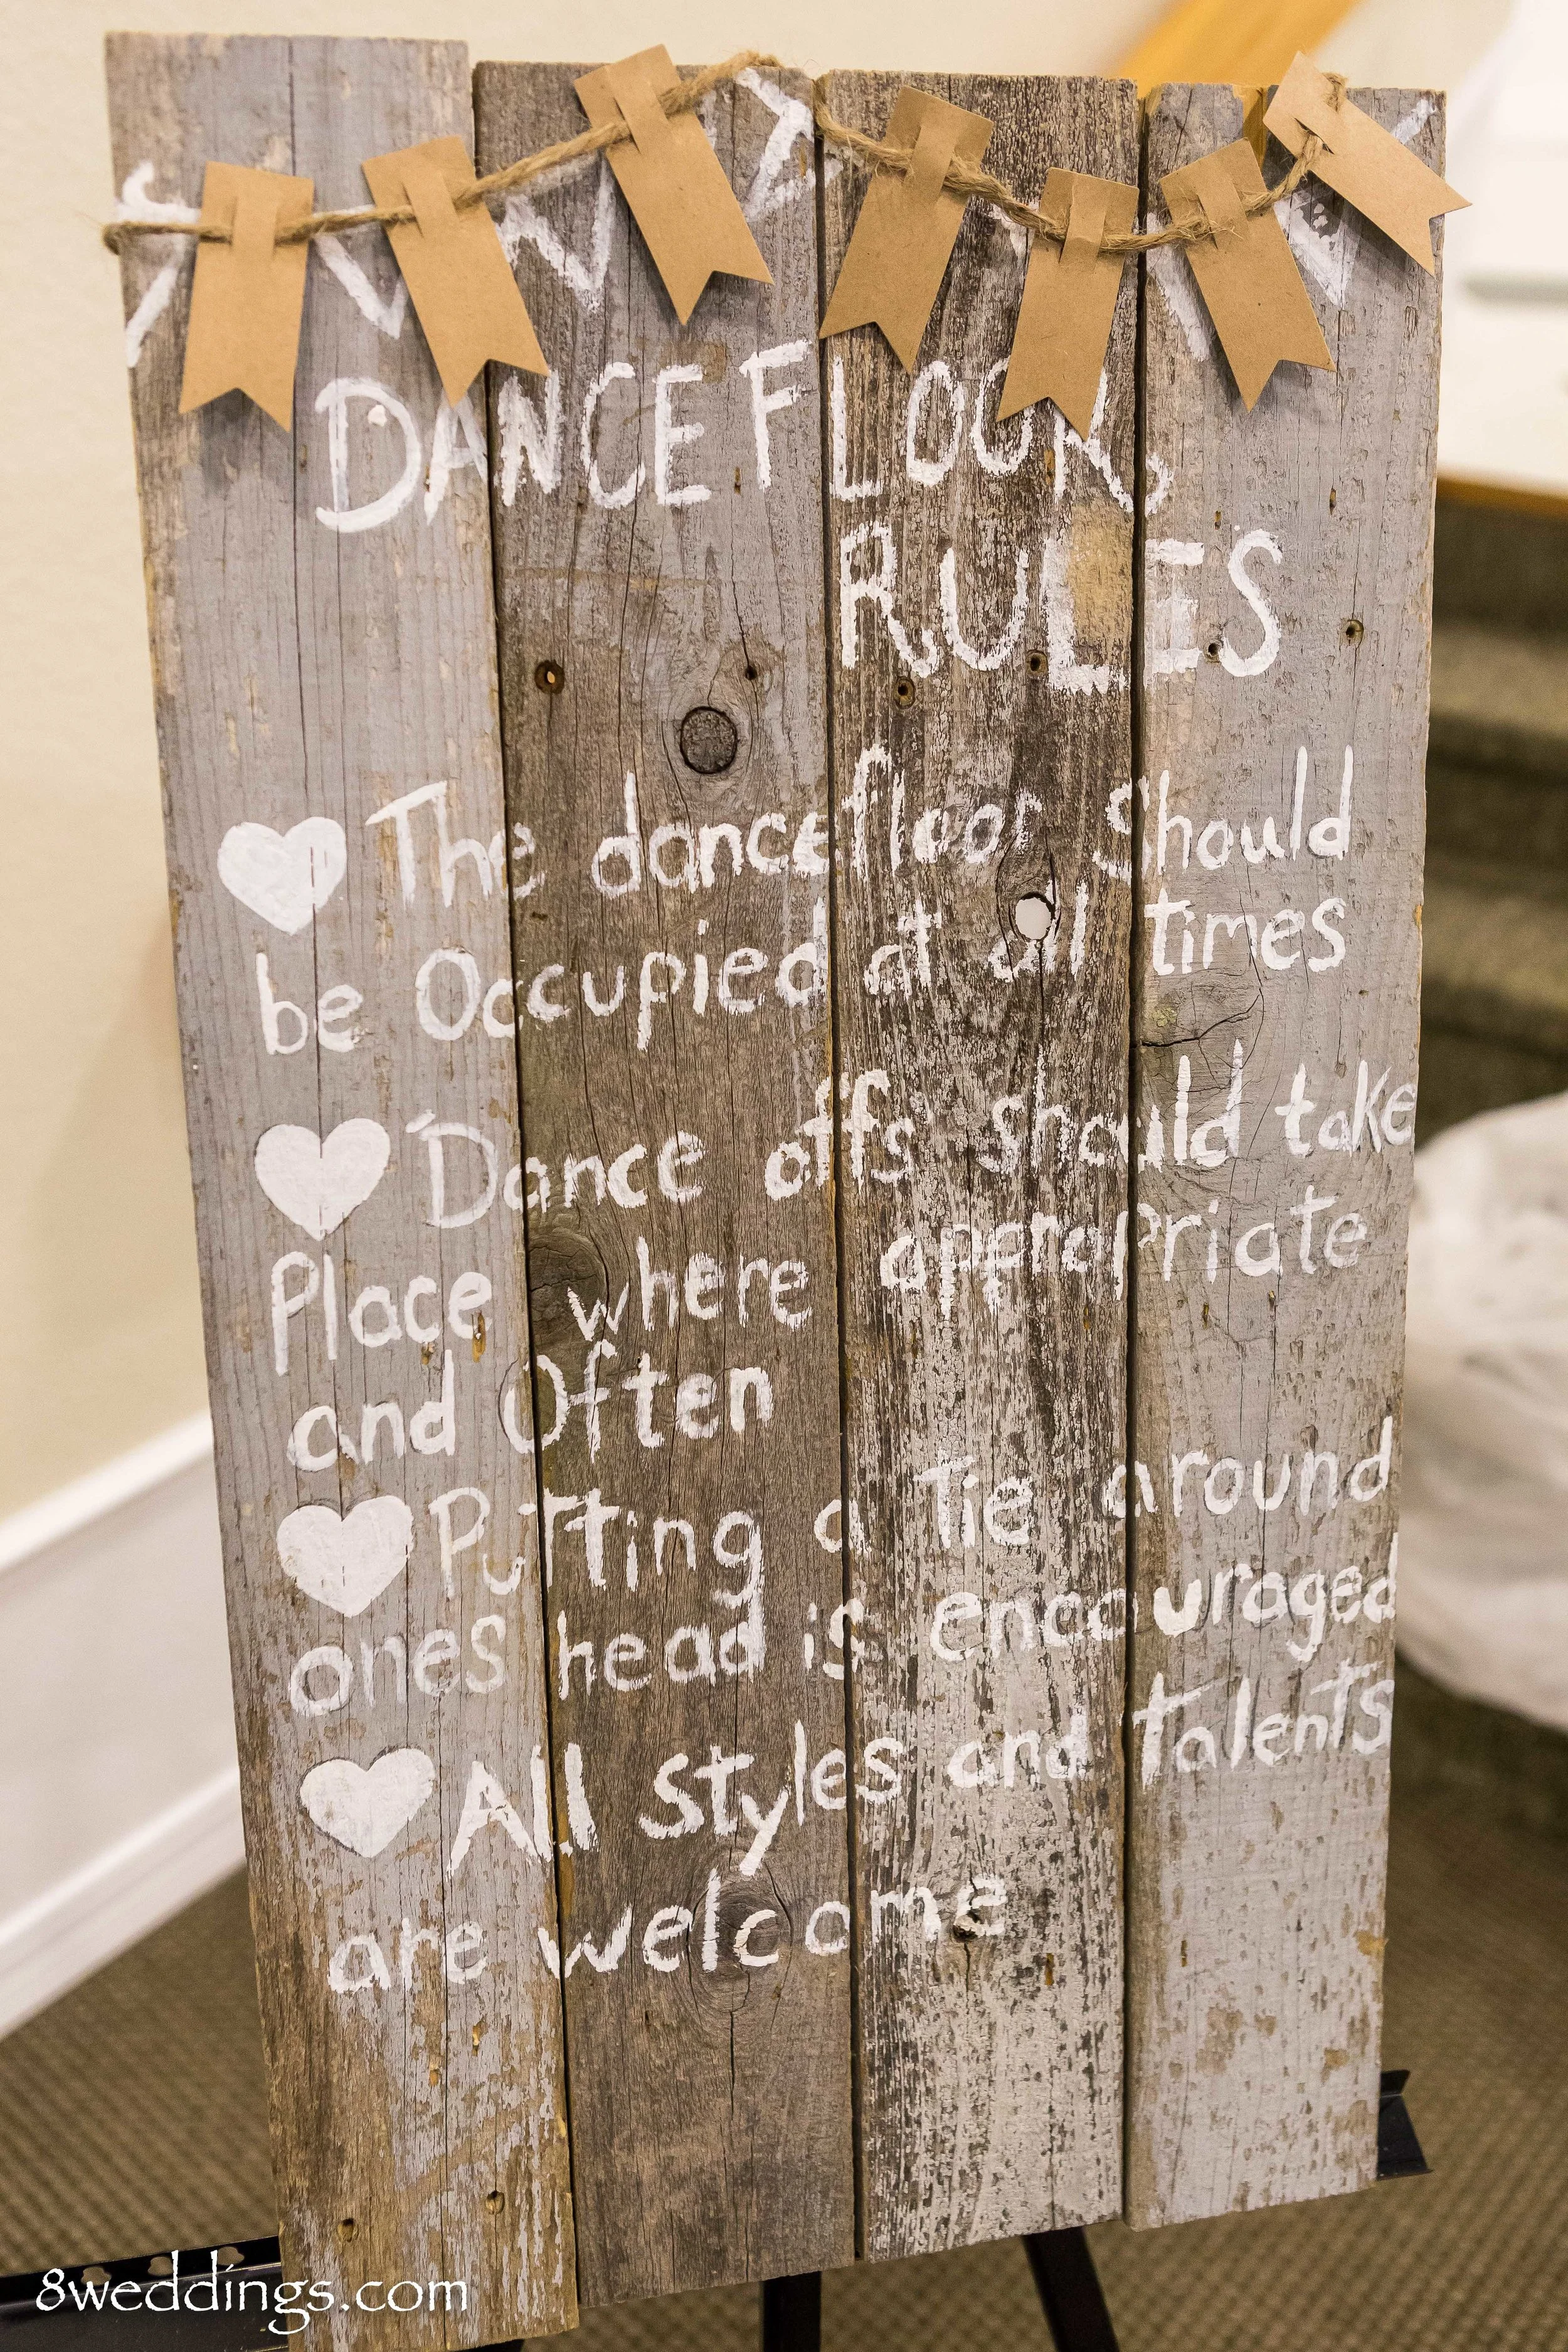 DANCE FLOOR
RULES
The dancefloor Should
be Occupied at all times
Dance offs should take
Place where appropriate
and Often
Putting a Tie around
ones head is encouraged
All styles and talents
are welcome
8weddings.com